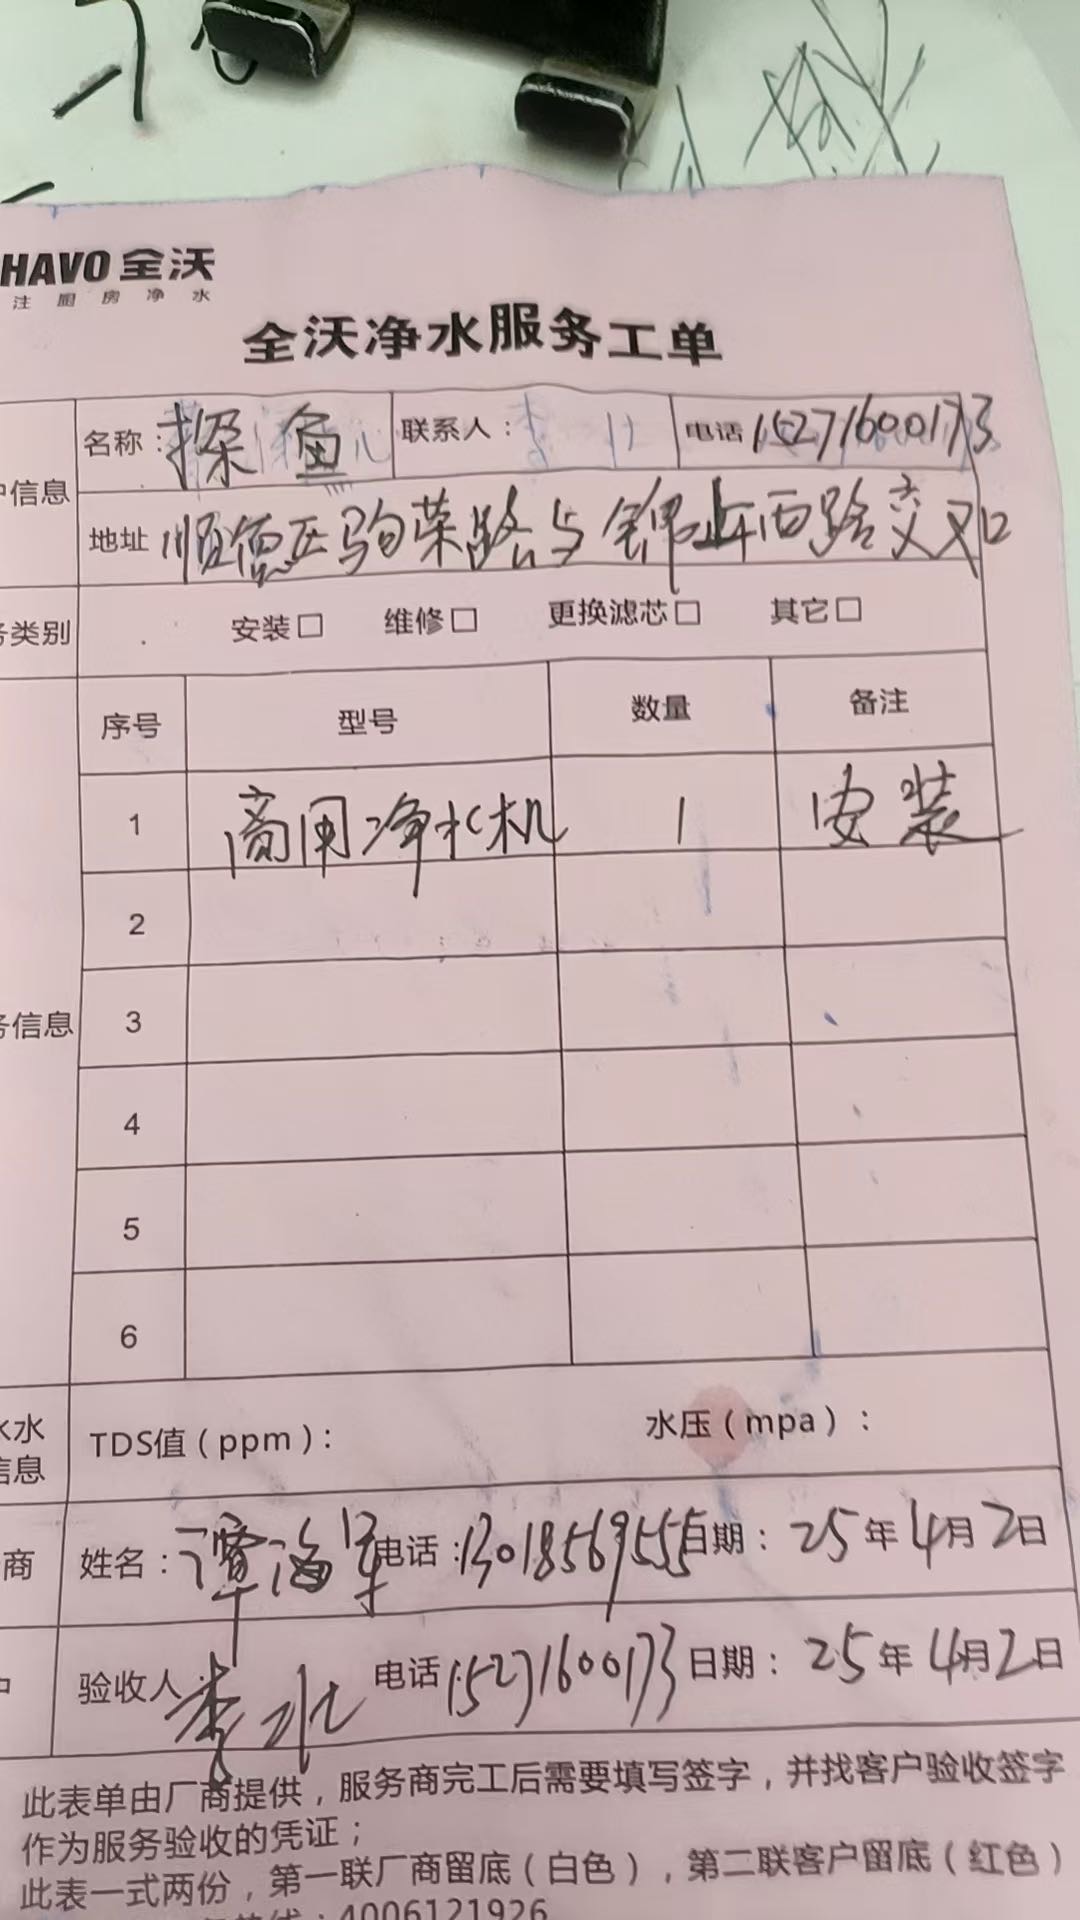 HAVO 全沃
注厨房净水
全沃净水服务工单
户信息 名称：探鱼 联系人： 电话 15271600173
地址 顺德区驹荣路与锦业西路交叉口
务类别 安装□ 维修□ 更换滤芯□ 其它□
序号 型号 数量 备注
1 商用净水机 1 安装
2
务信息 3
4
5
6
水水信息 TDS值（ppm）： 水压（mpa）：
商 姓名：谭海军 电话：13018569555 日期：25年4月2日
户 验收人 李 电话 15271600173 日期：25年4月2日
此表单由厂商提供，服务商完工后需要填写签字，并找客户验收签字
作为服务验收的凭证；
此表一式两份，第一联厂商留底（白色），第二联客户留底（红色）
热线：4006121926